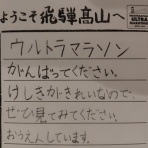 ようこそ飛騨高山へ
ウルトラマラソン
がんばってください。
けしきがきれいなので、
ぜひ見てみてください。
おうえんしています。
ULTRA